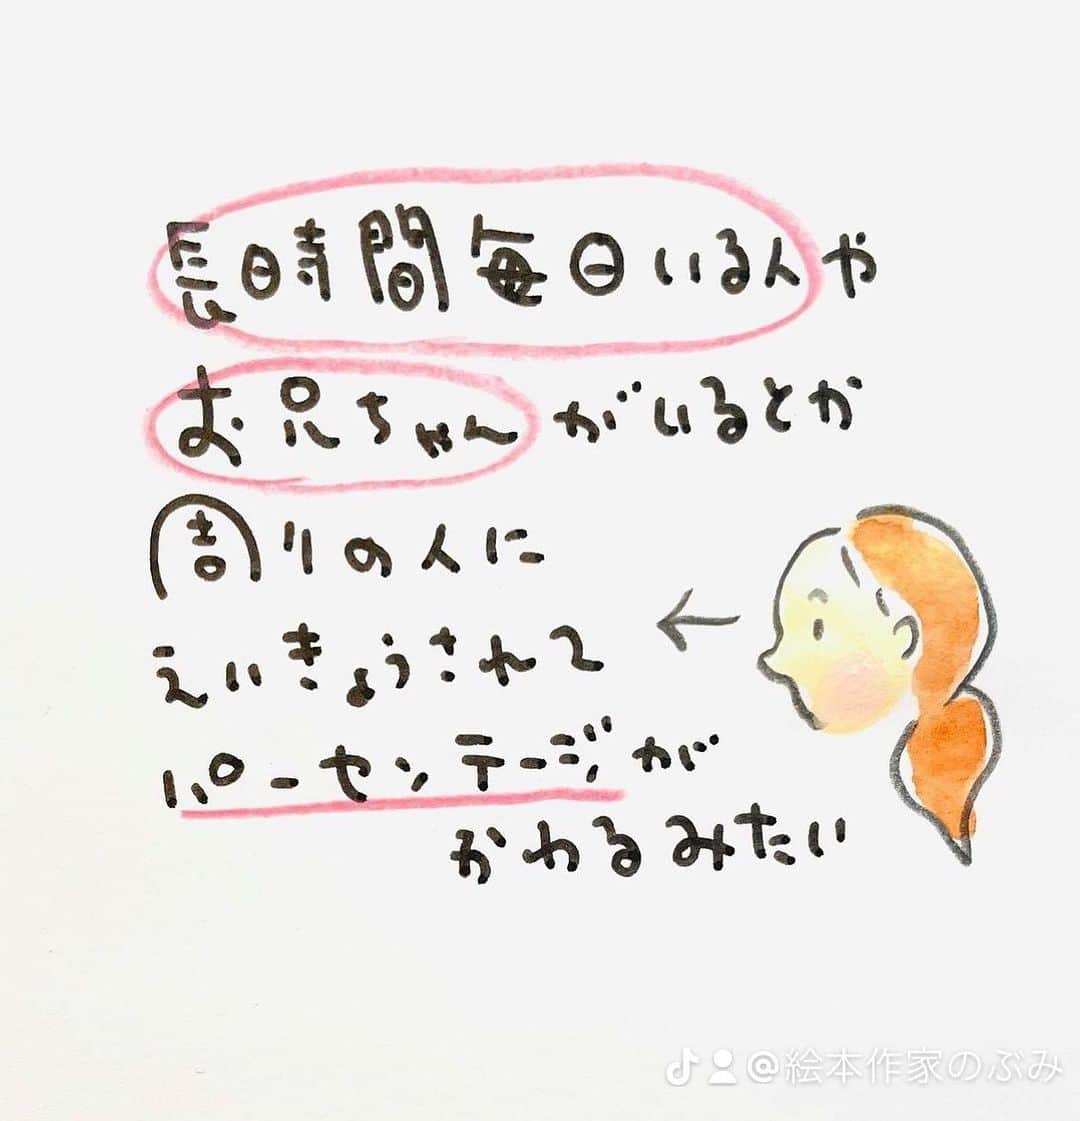 長時間毎日いる人や
お兄ちゃんがいるとか
周りの人に
えいきょうされて
パーセンテージが
かわるみたい
@絵本作家のぶみ